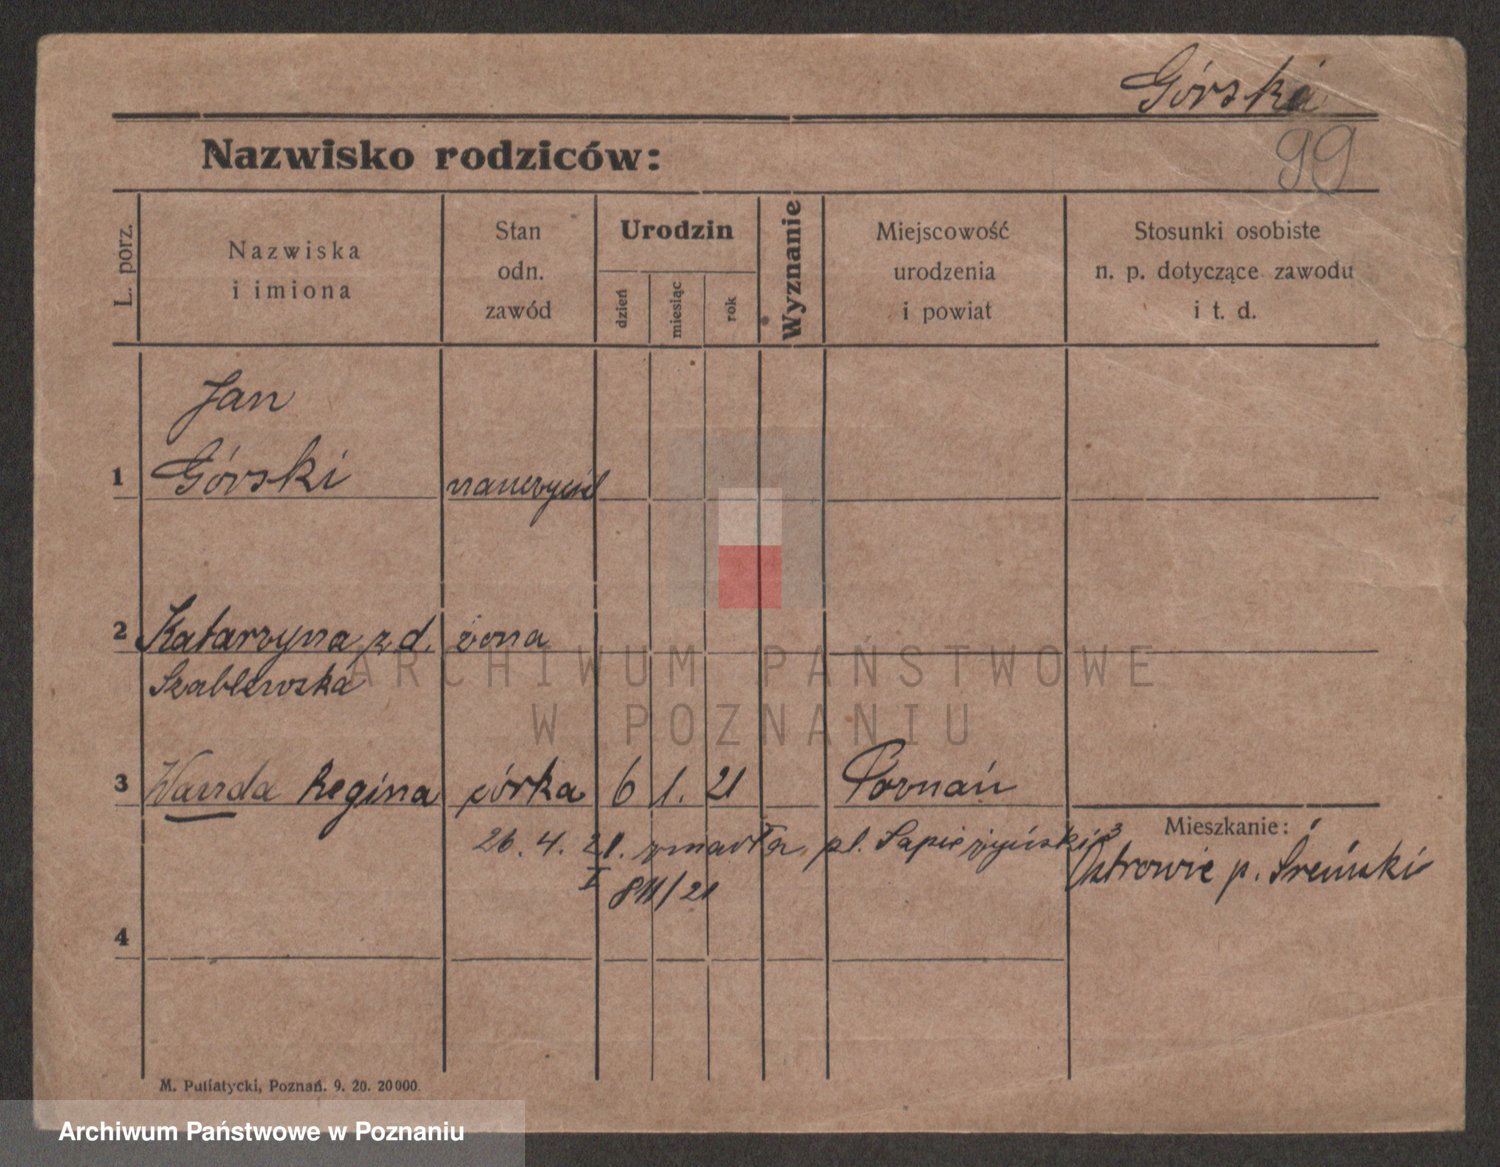 Górska
99
Nazwisko rodziców:
L. porz.
Nazwiska
i imiona
Stan
odn.
zawód
Urodzin
dzień
miesiąc
rok
Wyznanie
Miejscowość
urodzenia
i powiat
Stosunki osobiste
n. p. dotyczące zawodu
i t. d.
Jan
1 Górski nauczyciel
2 Katarzyna z d. żona
Szablewska
3 Wanda Regina córka 6 1. 21 Poznań
Mieszkanie:
26. 4. 21. zmarła, pl. Sapieżyński 3
Ostrowie p. Śremski
I 811/21
4
ARCHIWUM PAŃSTWOWE
W POZNANIU
M. Putiatycki, Poznań. 9. 20. 20000.
Archiwum Państwowe w Poznaniu